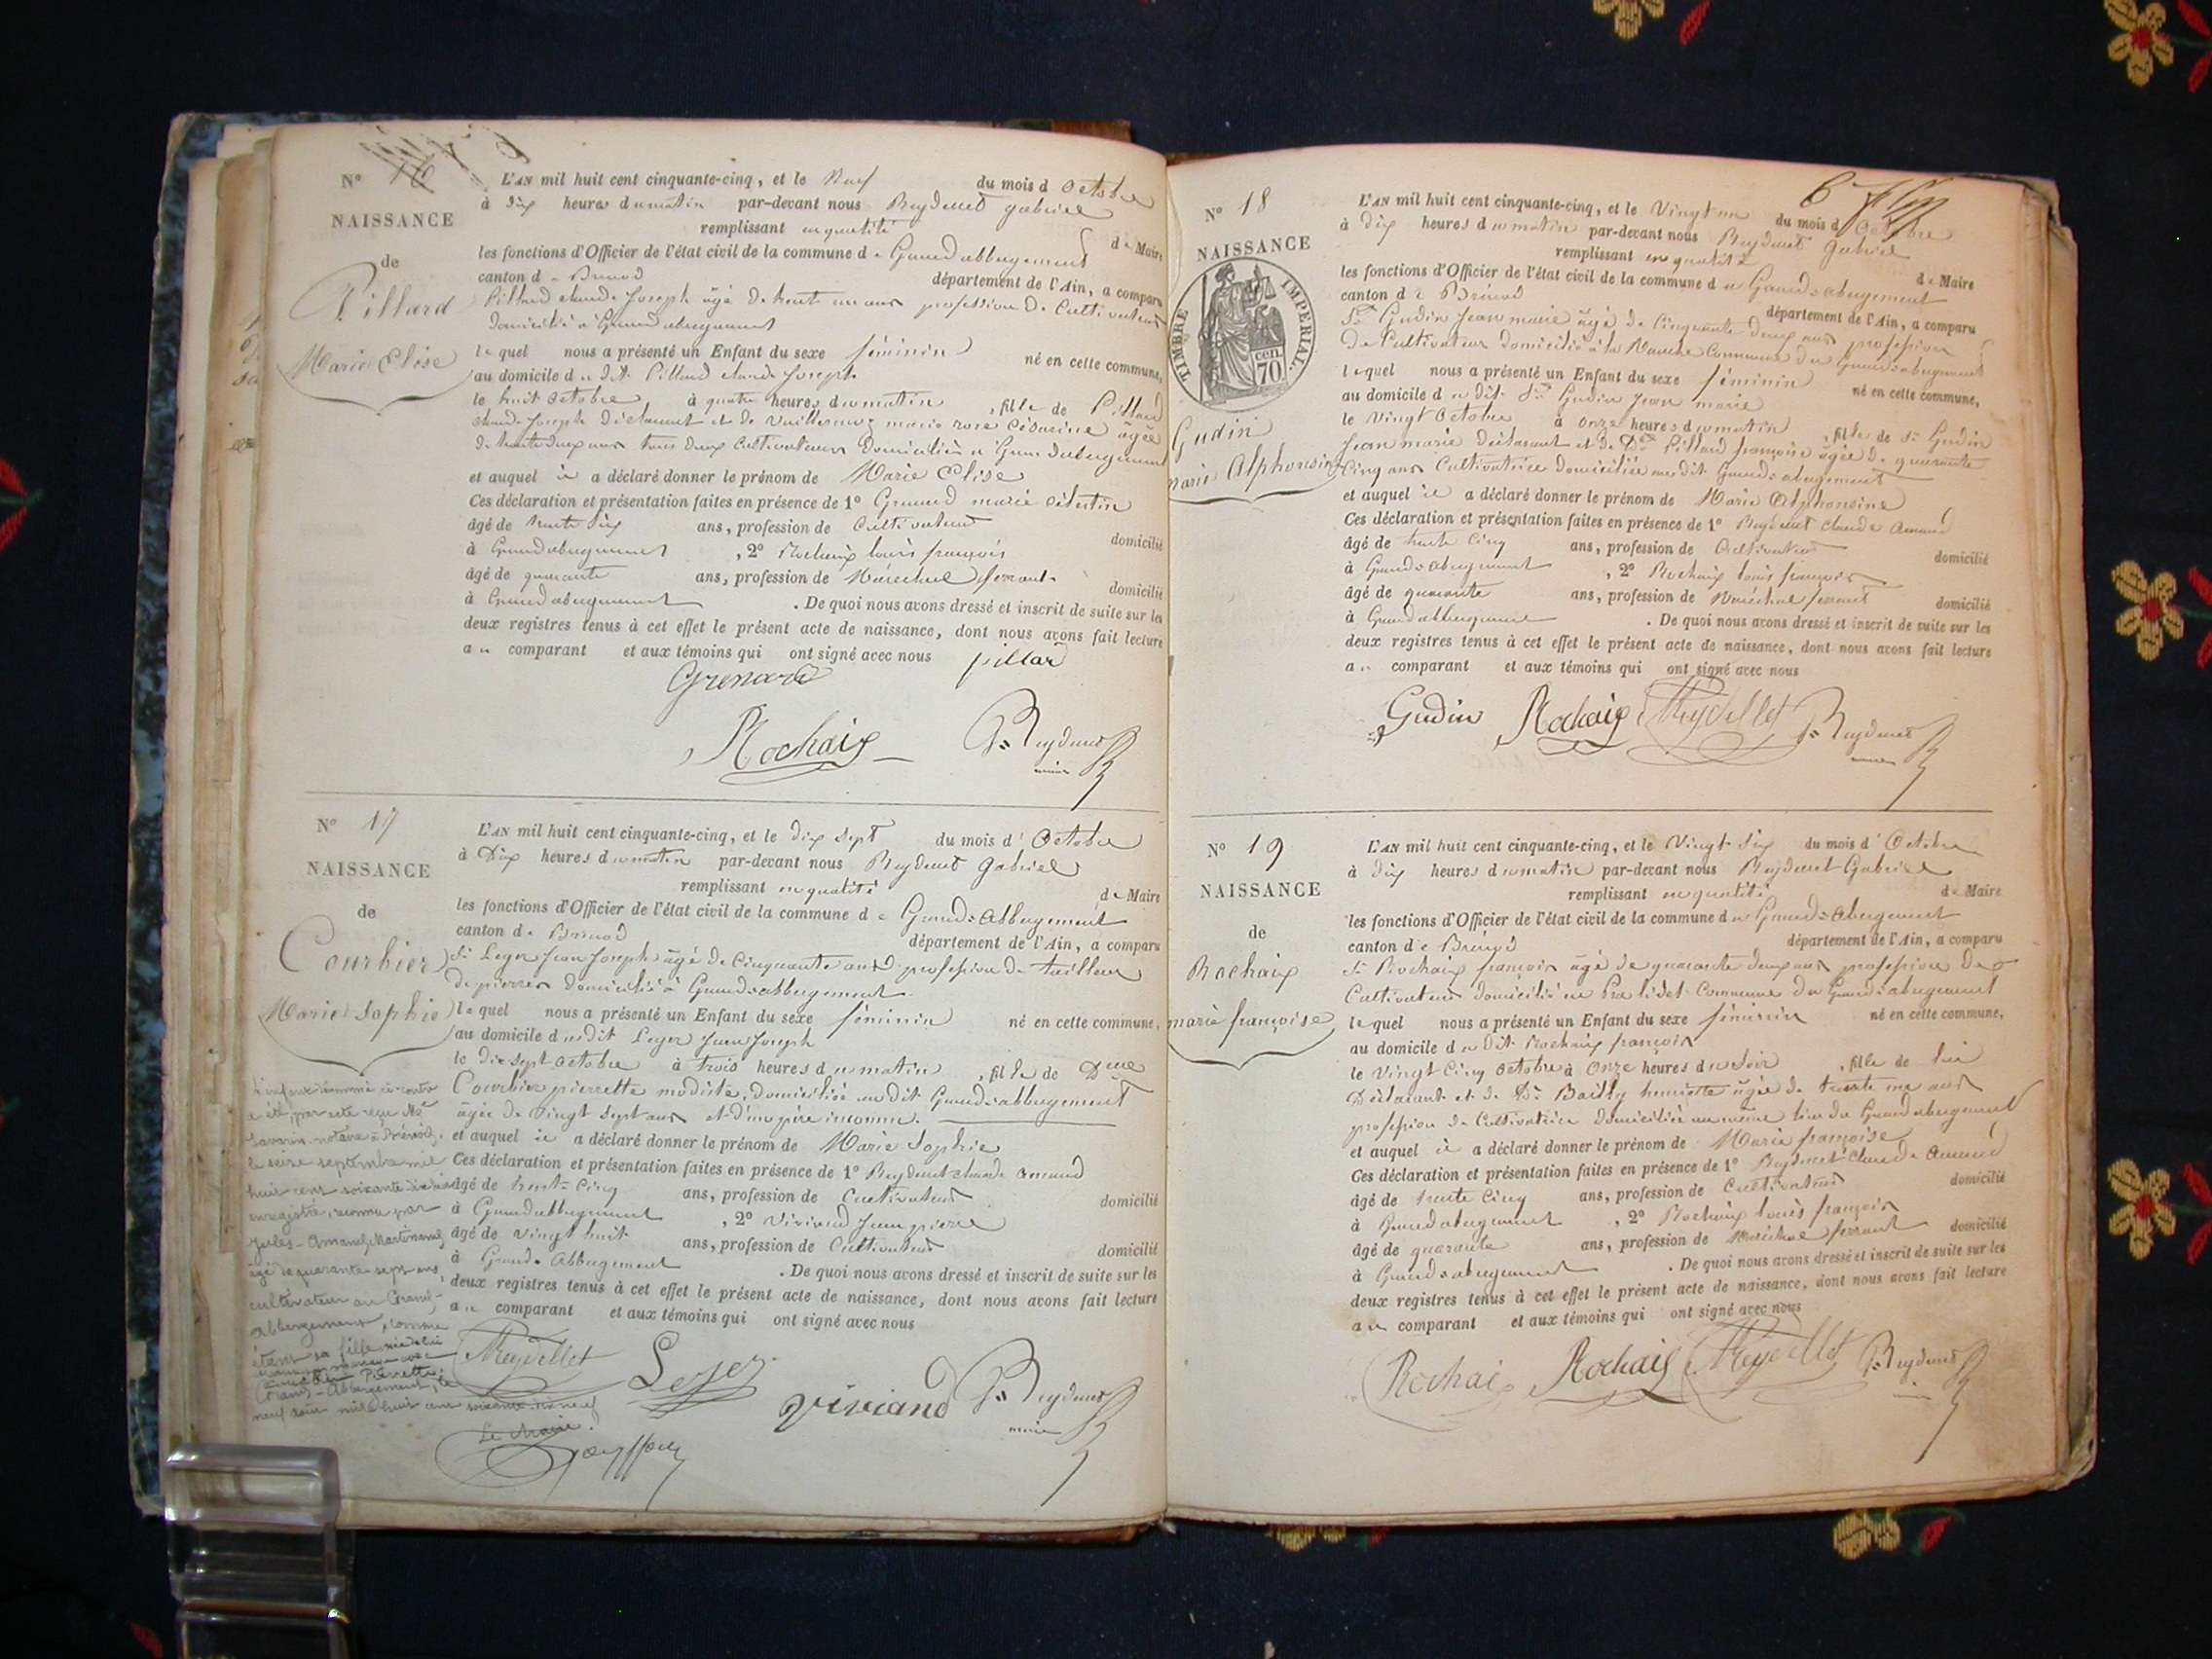 N° 16
NAISSANCE
de
Pillard
Marie Elise
L'AN mil huit cent cinquante-cinq, et le Neuf du mois d octobre
à dix heures du matin par-devant nous Reydellet gabriel
remplissant en qualité de Maire
les fonctions d'Officier de l'état civil de la commune de Grand abbergement
canton de Brenod département de l'Ain, a comparu
Pillard claude Joseph âgé de trente un ans profession de Cultivateur
domicilié à Grand abergement
lequel nous a présenté un Enfant du sexe féminin né en cette commune,
au domicile du dit Pillard claude Joseph
le huit octobre à quatre heures du matin, fille de Pillard
claude Joseph déclarant et de Vuillermoz marie rose Césarine âgée
de trente deux ans tous deux Cultivateurs domiciliés à Grand abergement
et auquel il a déclaré donner le prénom de Marie Elise
Ces déclaration et présentation faites en présence de 1° Grenard marie Célestin
âgé de trente six ans, profession de Cultivateur domicilié
à Grand abergement, 2° Rochaix louis françois
âgé de quarante ans, profession de Maréchal ferrant domicilié
à Grand abergement. De quoi nous avons dressé et inscrit de suite sur les
deux registres tenus à cet effet le présent acte de naissance, dont nous avons fait lecture
au comparant et aux témoins qui ont signé avec nous pillar
Grenard
Rochaix G. Reydellet
maire
N° 17
NAISSANCE
de
Courbier
Marie Sophie
L'AN mil huit cent cinquante-cinq, et le dix sept du mois d' Octobre
à Dix heures du matin par-devant nous Reydellet Gabriel
remplissant en qualité de Maire
les fonctions d'Officier de l'état civil de la commune de Grand-Abbergement
canton de Brenod département de l'Ain, a comparu
Sr Leger Jean Joseph âgé de Cinquante ans profession de tailleur
de pierres domicilié à Grand-abbergement
lequel nous a présenté un Enfant du sexe féminin né en cette commune,
au domicile du dit Leger Jean Joseph
le dix sept octobre à trois heures du matin, fille de Dlle
Courbier pierrette modiste, domiciliée au dit Grand-abbergement
âgée de vingt sept ans et d'un père inconnu.
et auquel il a déclaré donner le prénom de Marie Sophie
Ces déclaration et présentation faites en présence de 1° Reydellet claude amand
âgé de trente cinq ans, profession de Cultivateur domicilié
à Grand abbergement, 2° Viviand Jean pierre
âgé de vingt huit ans, profession de Cultivateur domicilié
à Grand-Abbergement. De quoi nous avons dressé et inscrit de suite sur les
deux registres tenus à cet effet le présent acte de naissance, dont nous avons fait lecture
au comparant et aux témoins qui ont signé avec nous
Reydellet Leger Viviand G. Reydellet
maire
L'enfant dénommé ci-contre
a été, par acte reçu Me
Savarin notaire à Brénod,
le seize septembre mil
huit cent soixante-dix
enregistré, reconnu par
Jules-Amand Martinand
âgé de quarante-sept ans,
cultivateur au Grand-
Abbergement, comme
étant sa fille
Pierrette
Grand-Abbergement, le
neuf mil huit cent soixante-dix neuf
Le Maire
N° 18
NAISSANCE
TIMBRE IMPERIAL
70 cen.
Gudin
marie Alphonsine
L'AN mil huit cent cinquante-cinq, et le Vingt un du mois d' Octobre
à dix heures du matin par-devant nous Reydellet Gabriel
remplissant en qualité de Maire
les fonctions d'Officier de l'état civil de la commune du Grand-abergement
canton de Brénod département de l'Ain, a comparu
Sr Gudin Jean marie âgé de Cinquante deux ans profession
de Cultivateur domicilié à la Commune du Grand-abergement
lequel nous a présenté un Enfant du sexe féminin né en cette commune,
au domicile du dit Sr Gudin Jean marie
le Vingt Octobre à onze heures du matin, fille de Sr Gudin
Jean marie déclarant et de De Pillard françoise âgée de quarante
Cinq ans Cultivatrice domiciliée au dit Grand-abergement
et auquel il a déclaré donner le prénom de Marie Alphonsine
Ces déclaration et présentation faites en présence de 1° Reydellet Claude Amand
âgé de trente Cinq ans, profession de Cultivateur domicilié
à Grand-abergement, 2° Rochaix louis françois
âgé de quarante ans, profession de Maréchal ferrant domicilié
à Grand abbergement. De quoi nous avons dressé et inscrit de suite sur les
deux registres tenus à cet effet le présent acte de naissance, dont nous avons fait lecture
au comparant et aux témoins qui ont signé avec nous
Gudin Rochaix Reydellet G. Reydellet
N° 19
NAISSANCE
de
Rochaix
marie françoise
L'AN mil huit cent cinquante-cinq, et le Vingt-Six du mois d' Octobre
à dix heures du matin par-devant nous Reydellet Gabriel
remplissant en qualité de Maire
les fonctions d'Officier de l'état civil de la commune du Grand-abergement
canton de Brénod département de l'Ain, a comparu
Sr Rochaix françois âgé de quarante deux ans profession de
Cultivateur domicilié Commune du Grand-abergement
lequel nous a présenté un Enfant du sexe féminin né en cette commune,
au domicile du dit Rochaix françois
le Vingt Cinq octobre à Onze heures du Soir, fille de lui
Déclarant et de De Bailly henriette âgée de trente une ans
profession de Cultivatrice domiciliée au même lieu du Grand abergement
et auquel il a déclaré donner le prénom de Marie françoise
Ces déclaration et présentation faites en présence de 1° Reydellet Claude Amand
âgé de trente Cinq ans, profession de Cultivateur domicilié
à Grand abergement, 2° Rochaix louis françois
âgé de quarante ans, profession de Maréchal ferrant domicilié
à Grand-abergement. De quoi nous avons dressé et inscrit de suite sur les
deux registres tenus à cet effet le présent acte de naissance, dont nous avons fait lecture
au comparant et aux témoins qui ont signé avec nous
Rochaix Rochaix Reydellet G. Reydellet